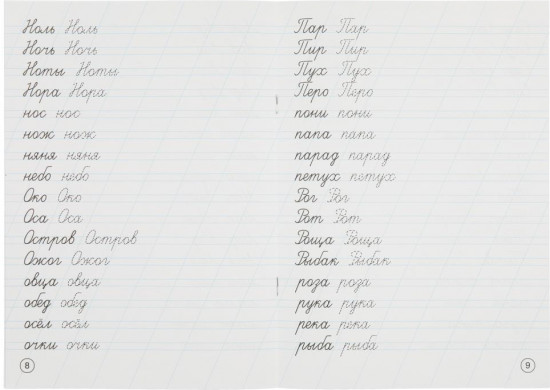 Ноль Ноль
Ночь Ночь
Ноты Ноты
Нора Нора
нос нос
нож нож
няня няня
небо небо
Око Око
Оса Оса
Остров Остров
Ожог Ожог
овца овца
обед обед
осёл осёл
очки очки
8
Пар Пар
Пир Пир
Пух Пух
Перо Перо
пони пони
папа папа
парад парад
петух петух
Рог Рог
Рот Рот
Роща Роща
Рыбак Рыбак
роза роза
рука рука
река река
рыба рыба
9